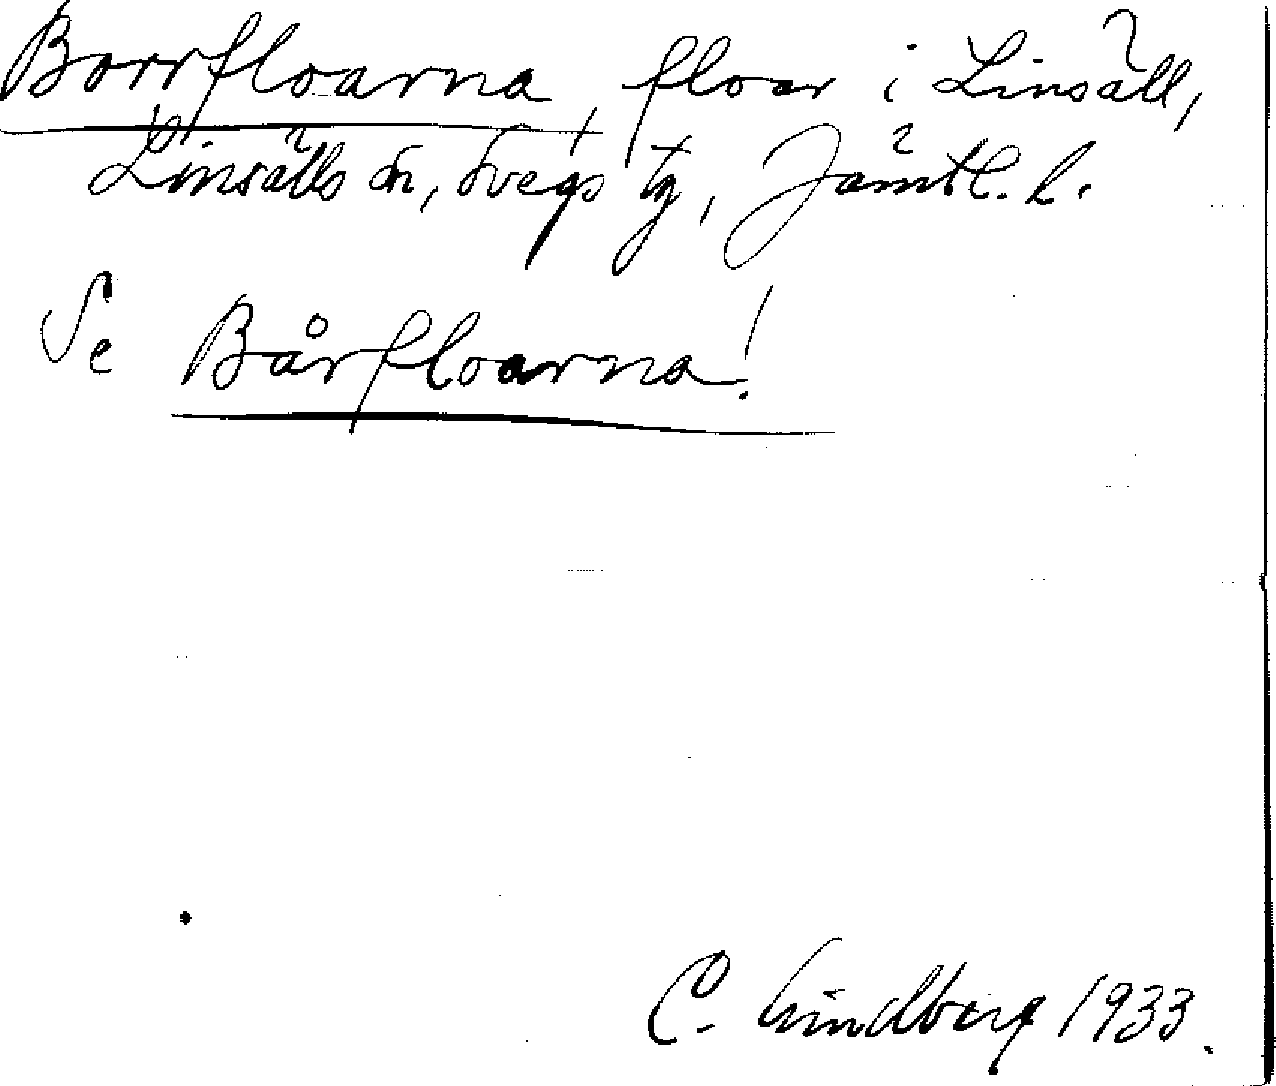 Borrfloarna, floar i Linsäll,
Linsälls sn, Svegs tg, Jämtl. l.
Se Bårfloarna!
C. Lindberg 1933.